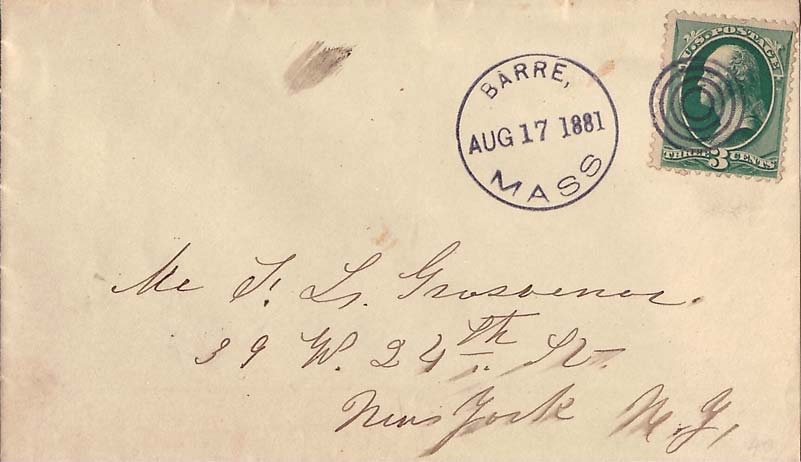 BARRE,
AUG 17 1881
MASS
U.S. POSTAGE
THREE 3 CENTS
Mr T. L. Grosvenor.
39 W. 24th St.
New York N.Y,